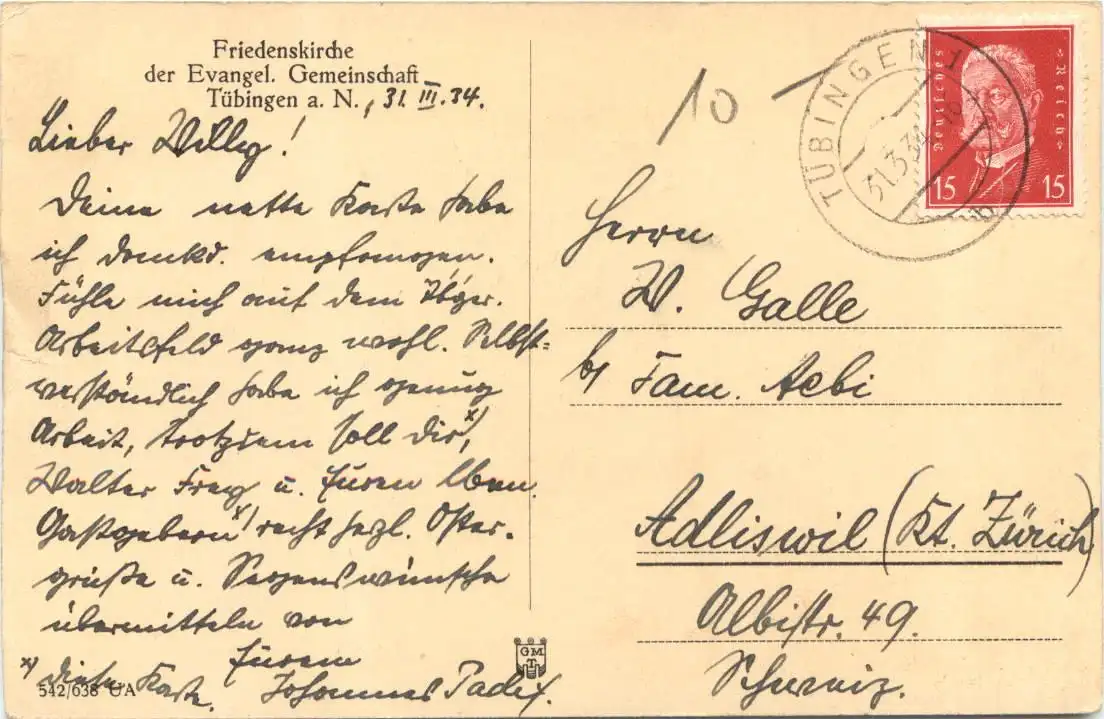 Friedenskirche
der Evangel. Gemeinschaft
Tübingen a. N., 31. III. 34.
Lieber Willy!
Deine nette Karte habe
ich dankd. empfangen.
Fühle mich auf dem Tbger.
Arbeitsfeld ganz wohl. Selbst=
verständlich habe ich genug
Arbeit, trotzdem soll dir, x)
Walter Frey u. Euren lben.
Gastgebern x) recht herzl. Oster-
grüße u. Segenswünsche
übermitteln von
Eurem
x) diese Karte.
Johannes
542/638 UA
GM
T
10
TÜBINGEN 1
31.3.34
b
Deutsches Reich
15 15
Herrn
W. Galle
b/ Fam. Aebi
Adliswil (Kt. Zürich)
Albisstr. 49.
Schweiz.